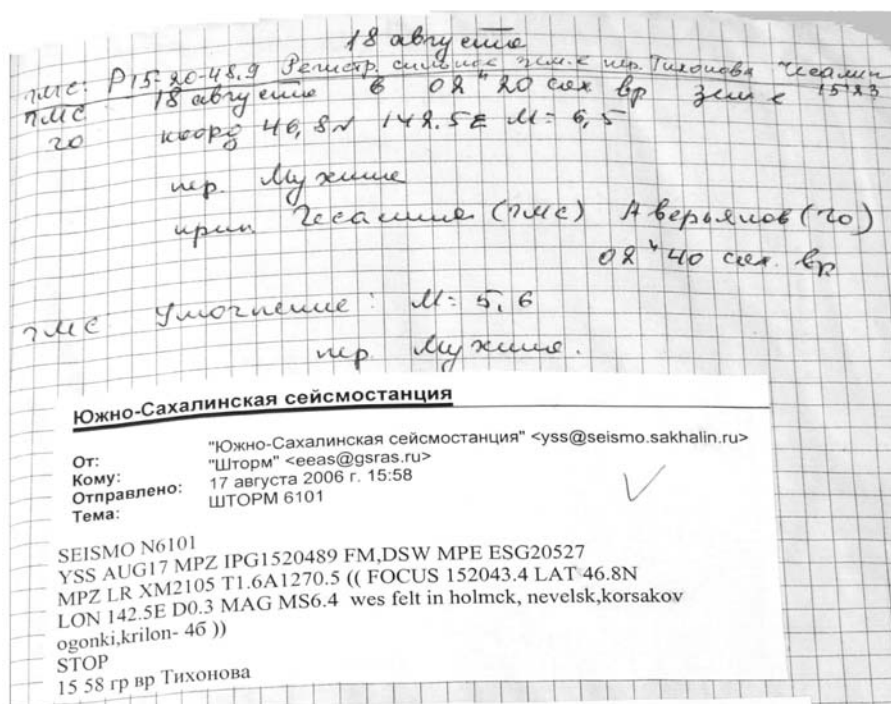 18 августа
ТМС. P15-20-48.9 Регистр. сильное зем-е пер. Тихонова Чесалин
15 23
ТМС 18 августа в 02ч 20 сах вр зем-е
го коорд 46,8N 142.5E M= 6,5
пер. Мухина
прин. (ТМС) Аверьянов (го)
02ч 40 сах. вр
ТМС Уточнение: M= 5,6
пер. Мухина.
Южно-Сахалинская сейсмостанция
От: "Южно-Сахалинская сейсмостанция" <yss@seismo.sakhalin.ru>
Кому: "Шторм" <eeas@gsras.ru>
Отправлено: 17 августа 2006 г. 15:58
Тема: ШТОРМ 6101
SEISMO N6101
YSS AUG17 MPZ IPG1520489 FM,DSW MPE ESG20527
MPZ LR XM2105 T1.6A1270.5 (( FOCUS 152043.4 LAT 46.8N
LON 142.5E D0.3 MAG MS6.4 wes felt in holmck, nevelsk,korsakov
ogonki,krilon- 4б ))
STOP
15 58 гр вр Тихонова